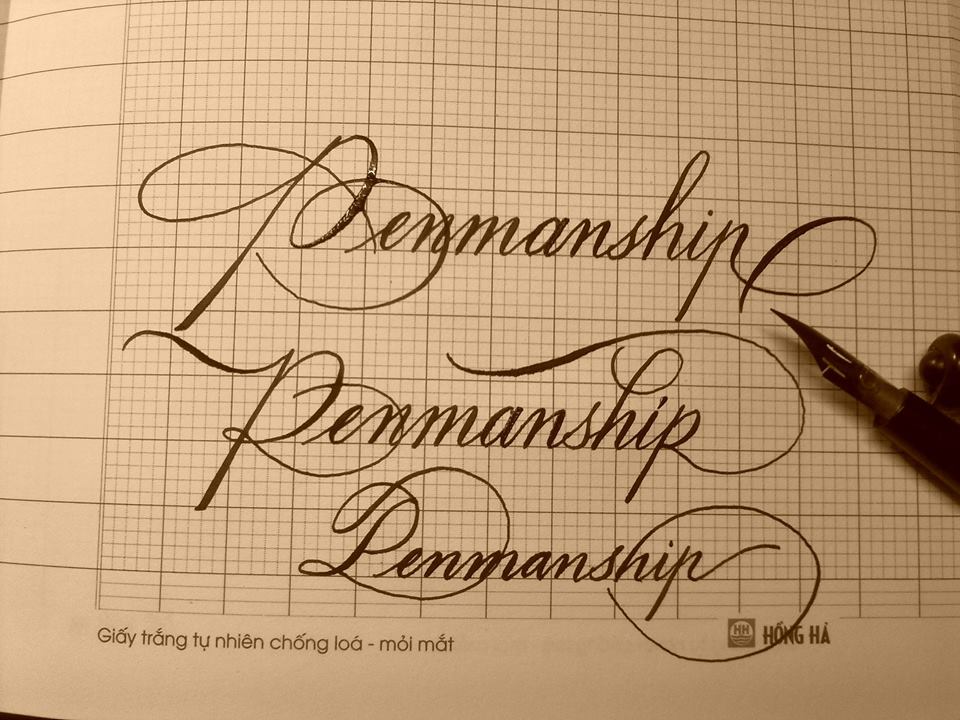 Penmanship
Penmanship
Penmanship
Giấy trắng tự nhiên chống loá - mỏi mắt
HH HỒNG HÀ